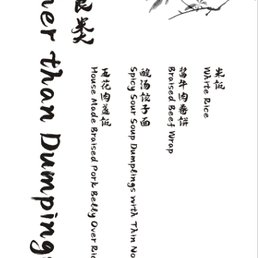 类
than Dumping
五花肉盖饭
House Made Braised Pork Belly Over Ric
酸汤饺子面
Spicy Sour Soup Dumplings with Thin No
牛肉卷饼
Braised Beef Wrap
米饭
White Rice